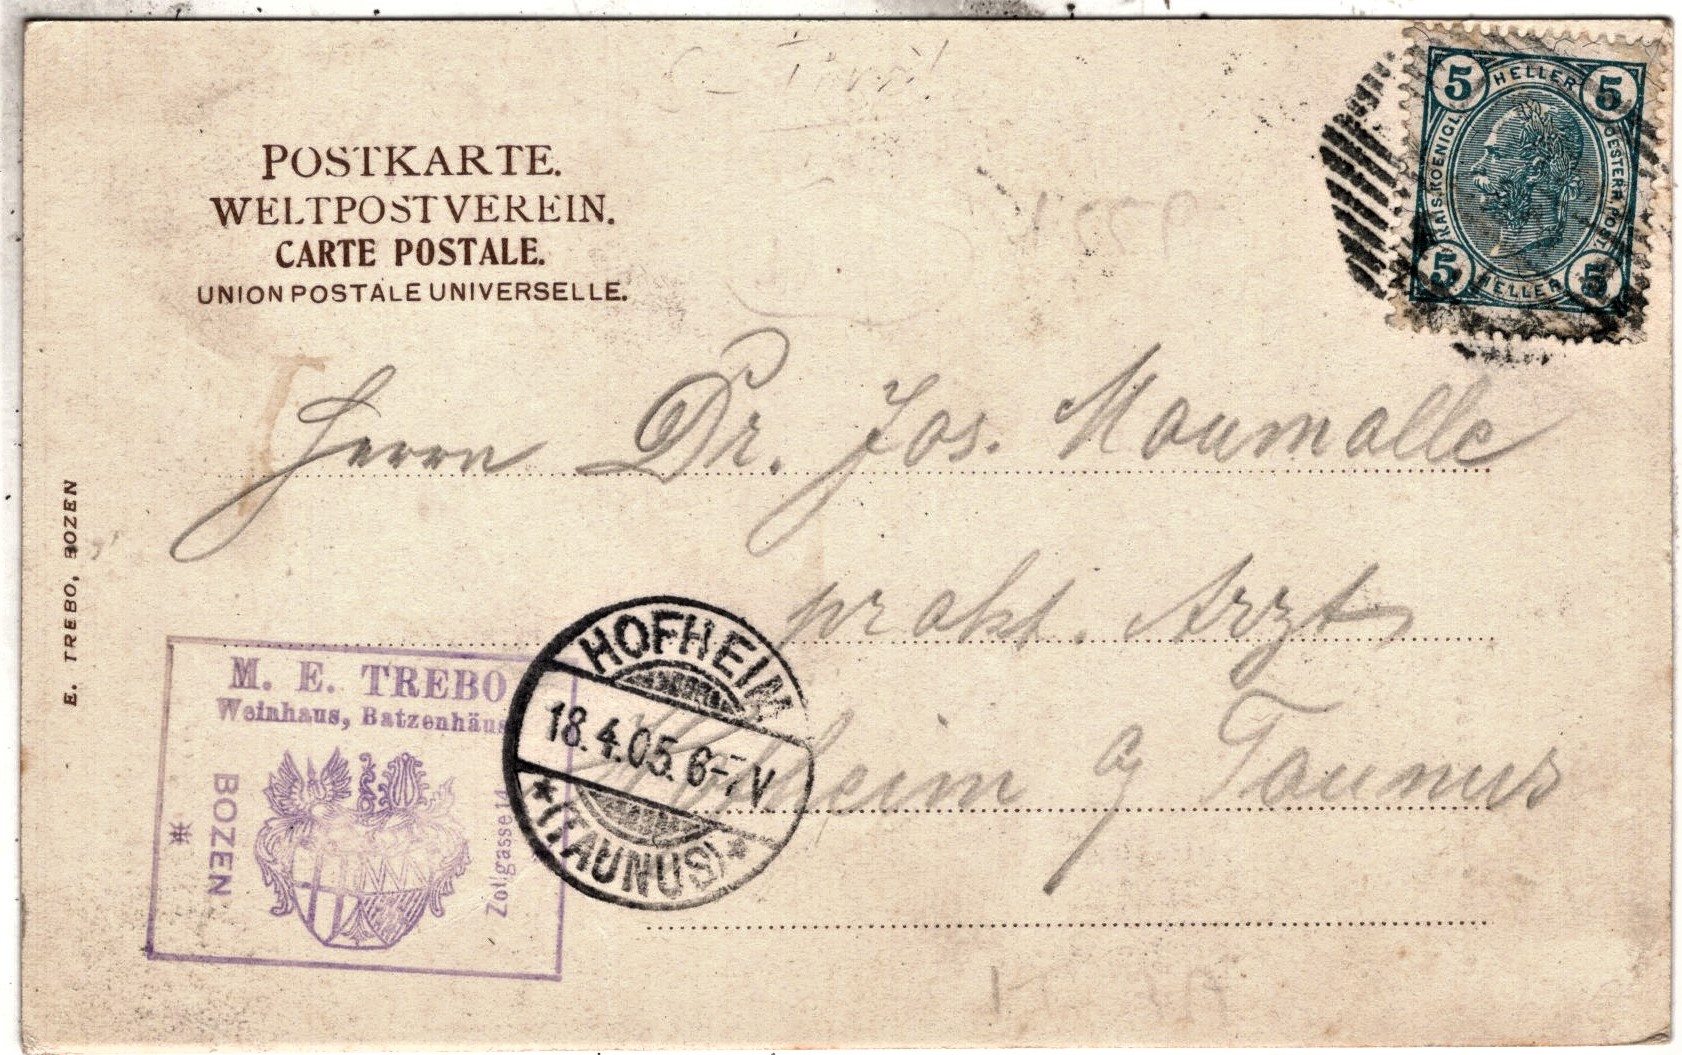 POSTKARTE.
WELTPOSTVEREIN.
CARTE POSTALE.
UNION POSTALE UNIVERSELLE.
5 HELLER 5
KAIS. KOENIGL.
OESTERR. POST.
5 HELLER 5
Herrn Dr. Jos. Maumalle
prakt. Arzt
Hofheim a/ Taunus
E. TREBO, BOZEN
M. E. TREBO
Weinhaus, Batzenhäus
BOZEN
Zollgasse 14
HOFHEIM
18.4.05. 6-7V
* (TAUNUS) *